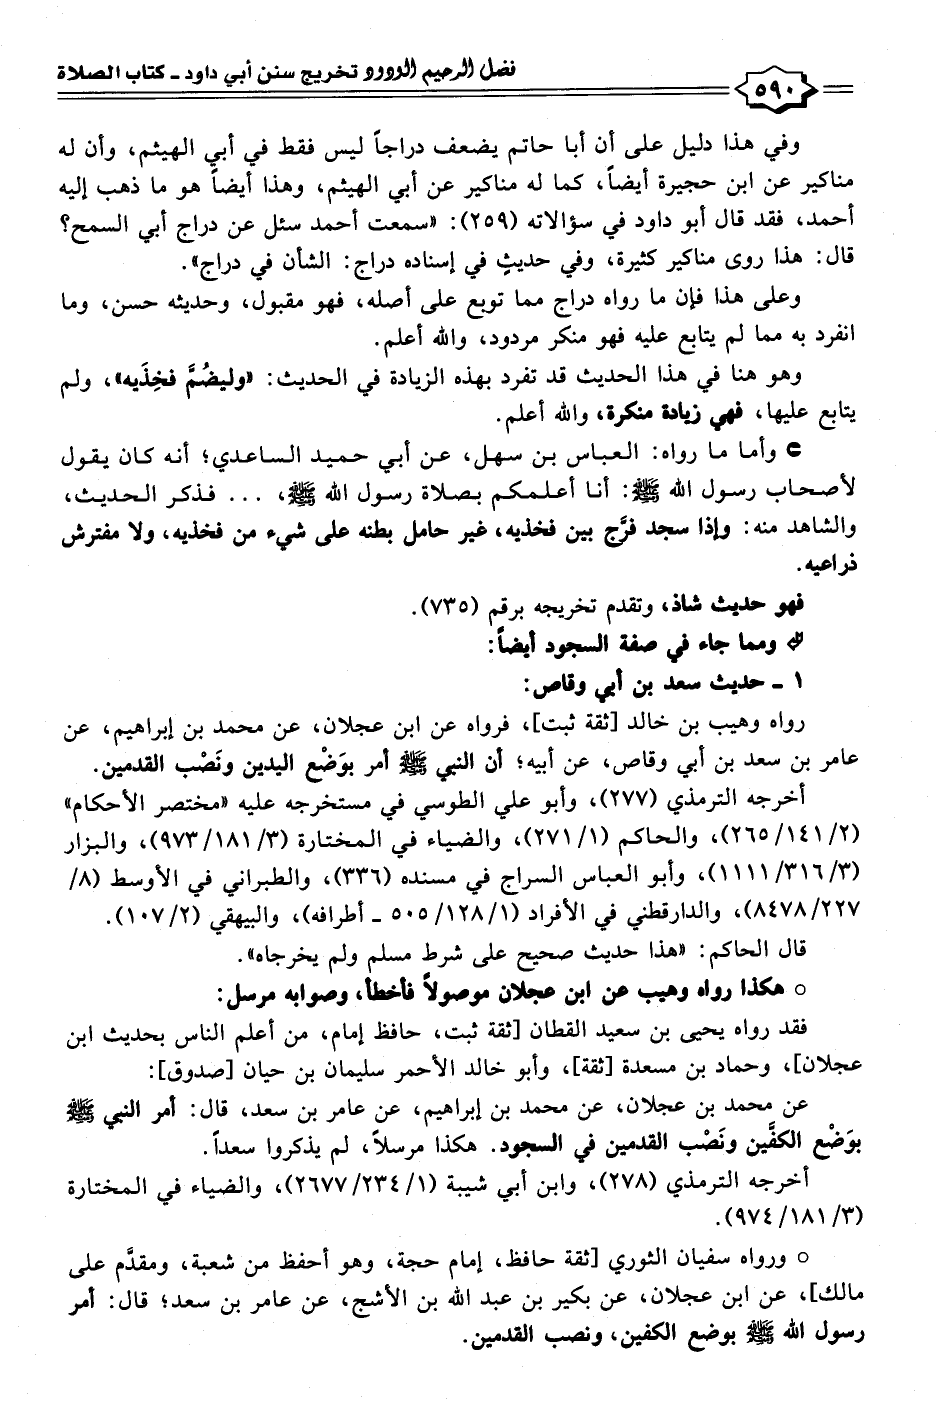 فضل الرحيم الودود تخريج سنن أبي داود ـ كتاب الصلاة
٥٩٠
وفي هذا دليل على أن أبا حاتم يضعف دراجاً ليس فقط في أبي الهيثم، وأن له
مناكير عن ابن حجيرة أيضاً، كما له مناكير عن أبي الهيثم، وهذا أيضاً هو ما ذهب إليه
أحمد، فقد قال أبو داود في سؤالاته (٢٥٩): «سمعت أحمد سئل عن دراج أبي السمح؟
قال: هذا روى مناكير كثيرة، وفي حديثٍ في إسناده دراج: الشأن في دراج».
وعلى هذا فإن ما رواه دراج مما توبع على أصله، فهو مقبول، وحديثه حسن، وما
انفرد به مما لم يتابع عليه فهو منكر مردود، والله أعلم.
وهو هنا في هذا الحديث قد تفرد بهذه الزيادة في الحديث: «وليضُمَّ فخِذَيه»، ولم
يتابع عليها، فهي زيادة منكرة، والله أعلم.
وأما ما رواه: العباس بن سهل، عن أبي حميد الساعدي؛ أنه كان يقول
لأصحاب رسول الله ﷺ: أنا أعلمكم بصلاة رسول الله ﷺ، ... فذكر الحديث،
والشاهد منه: وإذا سجد فرَّج بين فخذيه، غير حامل بطنه على شيء من فخذيه، ولا مفترش
ذراعيه.
فهو حديث شاذ، وتقدم تخريجه برقم (٧٣٥).
ومما جاء في صفة السجود أيضاً:
١ ـ حديث سعد بن أبي وقاص:
رواه وهيب بن خالد [ثقة ثبت]، فرواه عن ابن عجلان، عن محمد بن إبراهيم، عن
عامر بن سعد بن أبي وقاص، عن أبيه؛ أن النبي ﷺ أمر بوَضْع اليدين ونَصْب القدمين.
أخرجه الترمذي (٢٧٧)، وأبو علي الطوسي في مستخرجه عليه «مختصر الأحكام»
(٢/١٤١/٢٦٥)، والحاكم (١/٢٧١)، والضياء في المختارة (٣/١٨١/٩٧٣)، والبزار
(٣/٣١٦/١١١١)، وأبو العباس السراج في مسنده (٣٣٦)، والطبراني في الأوسط (٨/
٢٢٧/٨٤٧٨)، والدارقطني في الأفراد (١/١٢٨/٥٠٥ ـ أطرافه)، والبيهقي (٢/١٠٧).
قال الحاكم: «هذا حديث صحيح على شرط مسلم ولم يخرجاه».
○ هكذا رواه وهيب عن ابن عجلان موصولاً فأخطأ، وصوابه مرسل:
فقد رواه يحيى بن سعيد القطان [ثقة ثبت، حافظ إمام، من أعلم الناس بحديث ابن
عجلان]، وحماد بن مسعدة [ثقة]، وأبو خالد الأحمر سليمان بن حيان [صدوق]:
عن محمد بن عجلان، عن محمد بن إبراهيم، عن عامر بن سعد، قال: أمر النبي ﷺ
بوَضْع الكفَّين ونَصْب القدمين في السجود. هكذا مرسلاً، لم يذكروا سعداً.
أخرجه الترمذي (٢٧٨)، وابن أبي شيبة (١/٢٣٤/٢٦٧٧)، والضياء في المختارة
(٣/١٨١/٩٧٤).
○ ورواه سفيان الثوري [ثقة حافظ، إمام حجة، وهو أحفظ من شعبة، ومقدَّم على
مالك]، عن ابن عجلان، عن بكير بن عبد الله بن الأشج، عن عامر بن سعد؛ قال: أمر
رسول الله ﷺ بوضع الكفين، ونصب القدمين.